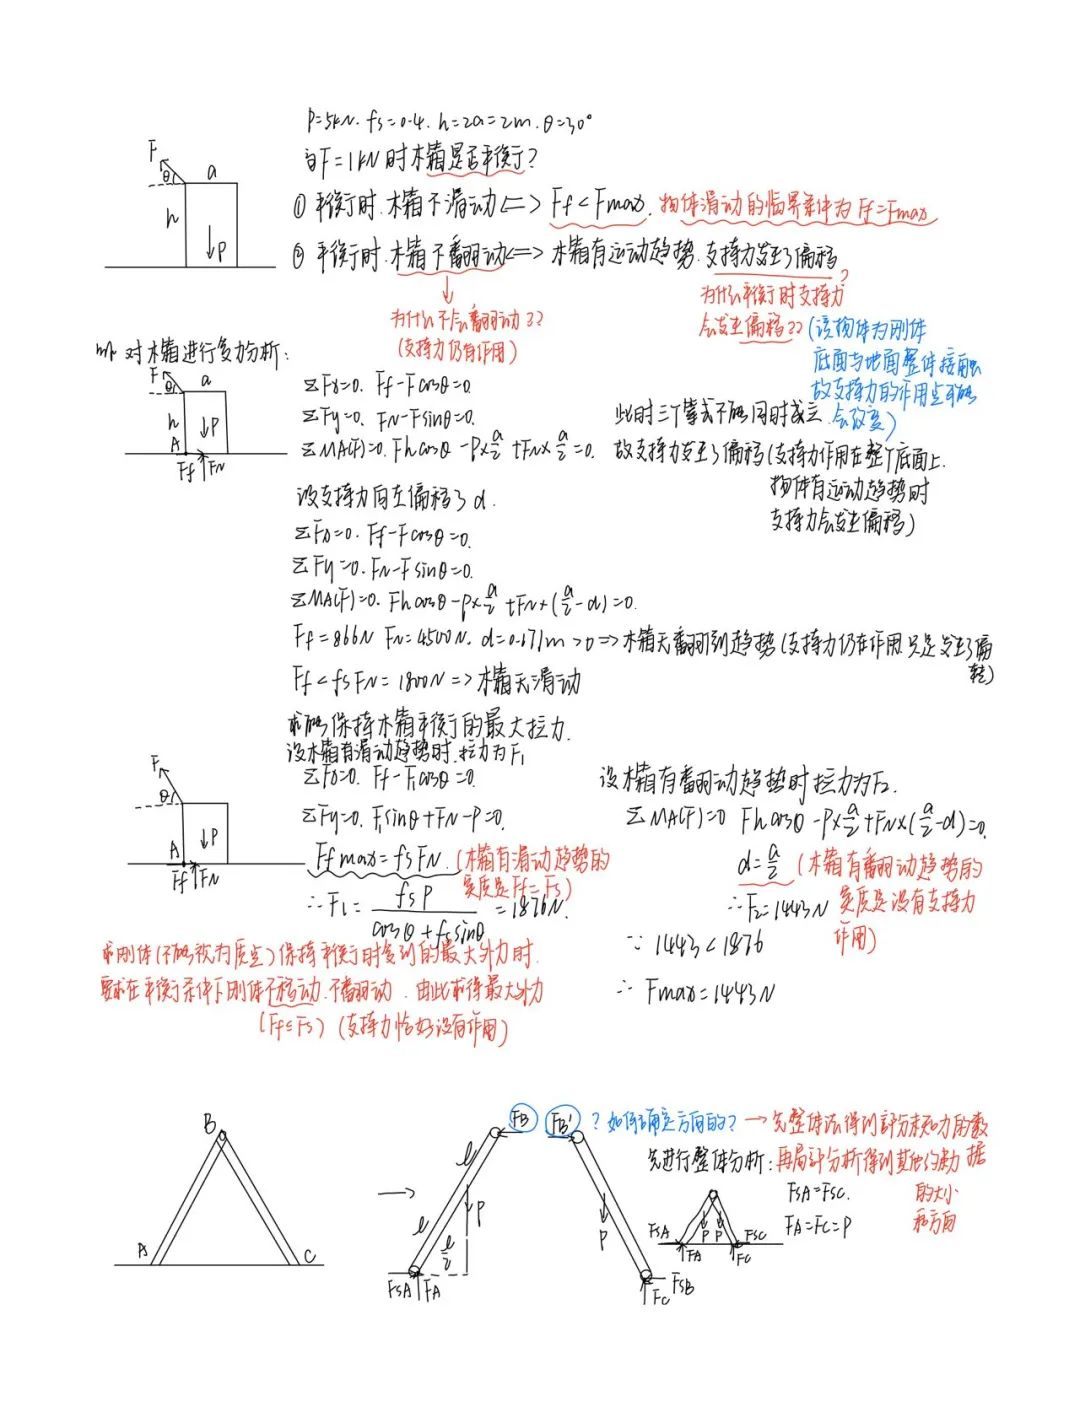 P=5kN. fs=0.4. h=2a=2m. θ=30°
当F=1kN时木箱是否平衡?
① 平衡时. 木箱不滑动<=> Ff<Fmax. 物体滑动的临界条件为Ff=Fmax
② 平衡时. 木箱不翻动<=> 木箱有运动趋势. 支持力发生了偏移
F θ a h P
为什么不会翻动??
(支持力仍有作用)
为什么平衡时支持力?
会发生偏移??
(该物体为刚体
底面与地面整体接触
故支持力的作用点可能
会改变)
对木箱进行受力分析:
F θ a h P A Ff FN
ΣFx=0. Ff-Fcosθ=0.
ΣFy=0. FN-Fsinθ=0.
ΣMA(F)=0. Fhcosθ -P×a/2 +FN×a/2=0.
此时三个等式不能同时成立
故支持力发生了偏移(支持力作用在整个底面上.
物体有运动趋势时
支持力会发生偏移)
设支持力向左偏移了d.
ΣFx=0. Ff-Fcosθ=0.
ΣFy=0. FN-Fsinθ=0.
ΣMA(F)=0. Fhcosθ-P×a/2 +FN×(a/2-d)=0.
Ff=866N FN=4500N. d=0.171m >0 => 木箱无翻倒趋势(支持力仍在作用.只是发生了偏
转)
Ff<fsFN=1800N => 木箱无滑动
求能保持木箱平衡的最大拉力.
设木箱有滑动趋势时.拉力为F1
F θ P A Ff FN
ΣFx=0. Ff-F1cosθ=0.
ΣFy=0. F1sinθ+FN-P=0.
Ffmax=fsFN. (木箱有滑动趋势的
实质是Ff=Fs)
∴F1= fsP/(cosθ+fssinθ) =1876N.
设木箱有翻动趋势时拉力为F2.
ΣMA(F)=0 Fhcosθ -P×a/2+FN×(a/2-d)=0.
d=a/2 (木箱有翻动趋势的
实质是没有支持力
作用)
∴F2=1443N
∵ 1443<1876
∴ Fmax=1443N
求刚体(不能视为质点)保持平衡时受到的最大外力时.
要求在平衡条件下刚体不移动.不翻动. 由此求得最大外力
(Ff≤Fs) (支持力恰好没有作用)
B A C
FB FB' ?如何确定方向的? → 先整体法得到部分未知力的数
据
先进行整体分析: 再局部分析得到其他约束力
的大小
和方向
l l l/2 P FSA FA
P FC FSB
FSA P P FSC FA FC
FSA=FSC.
FA=FC=P